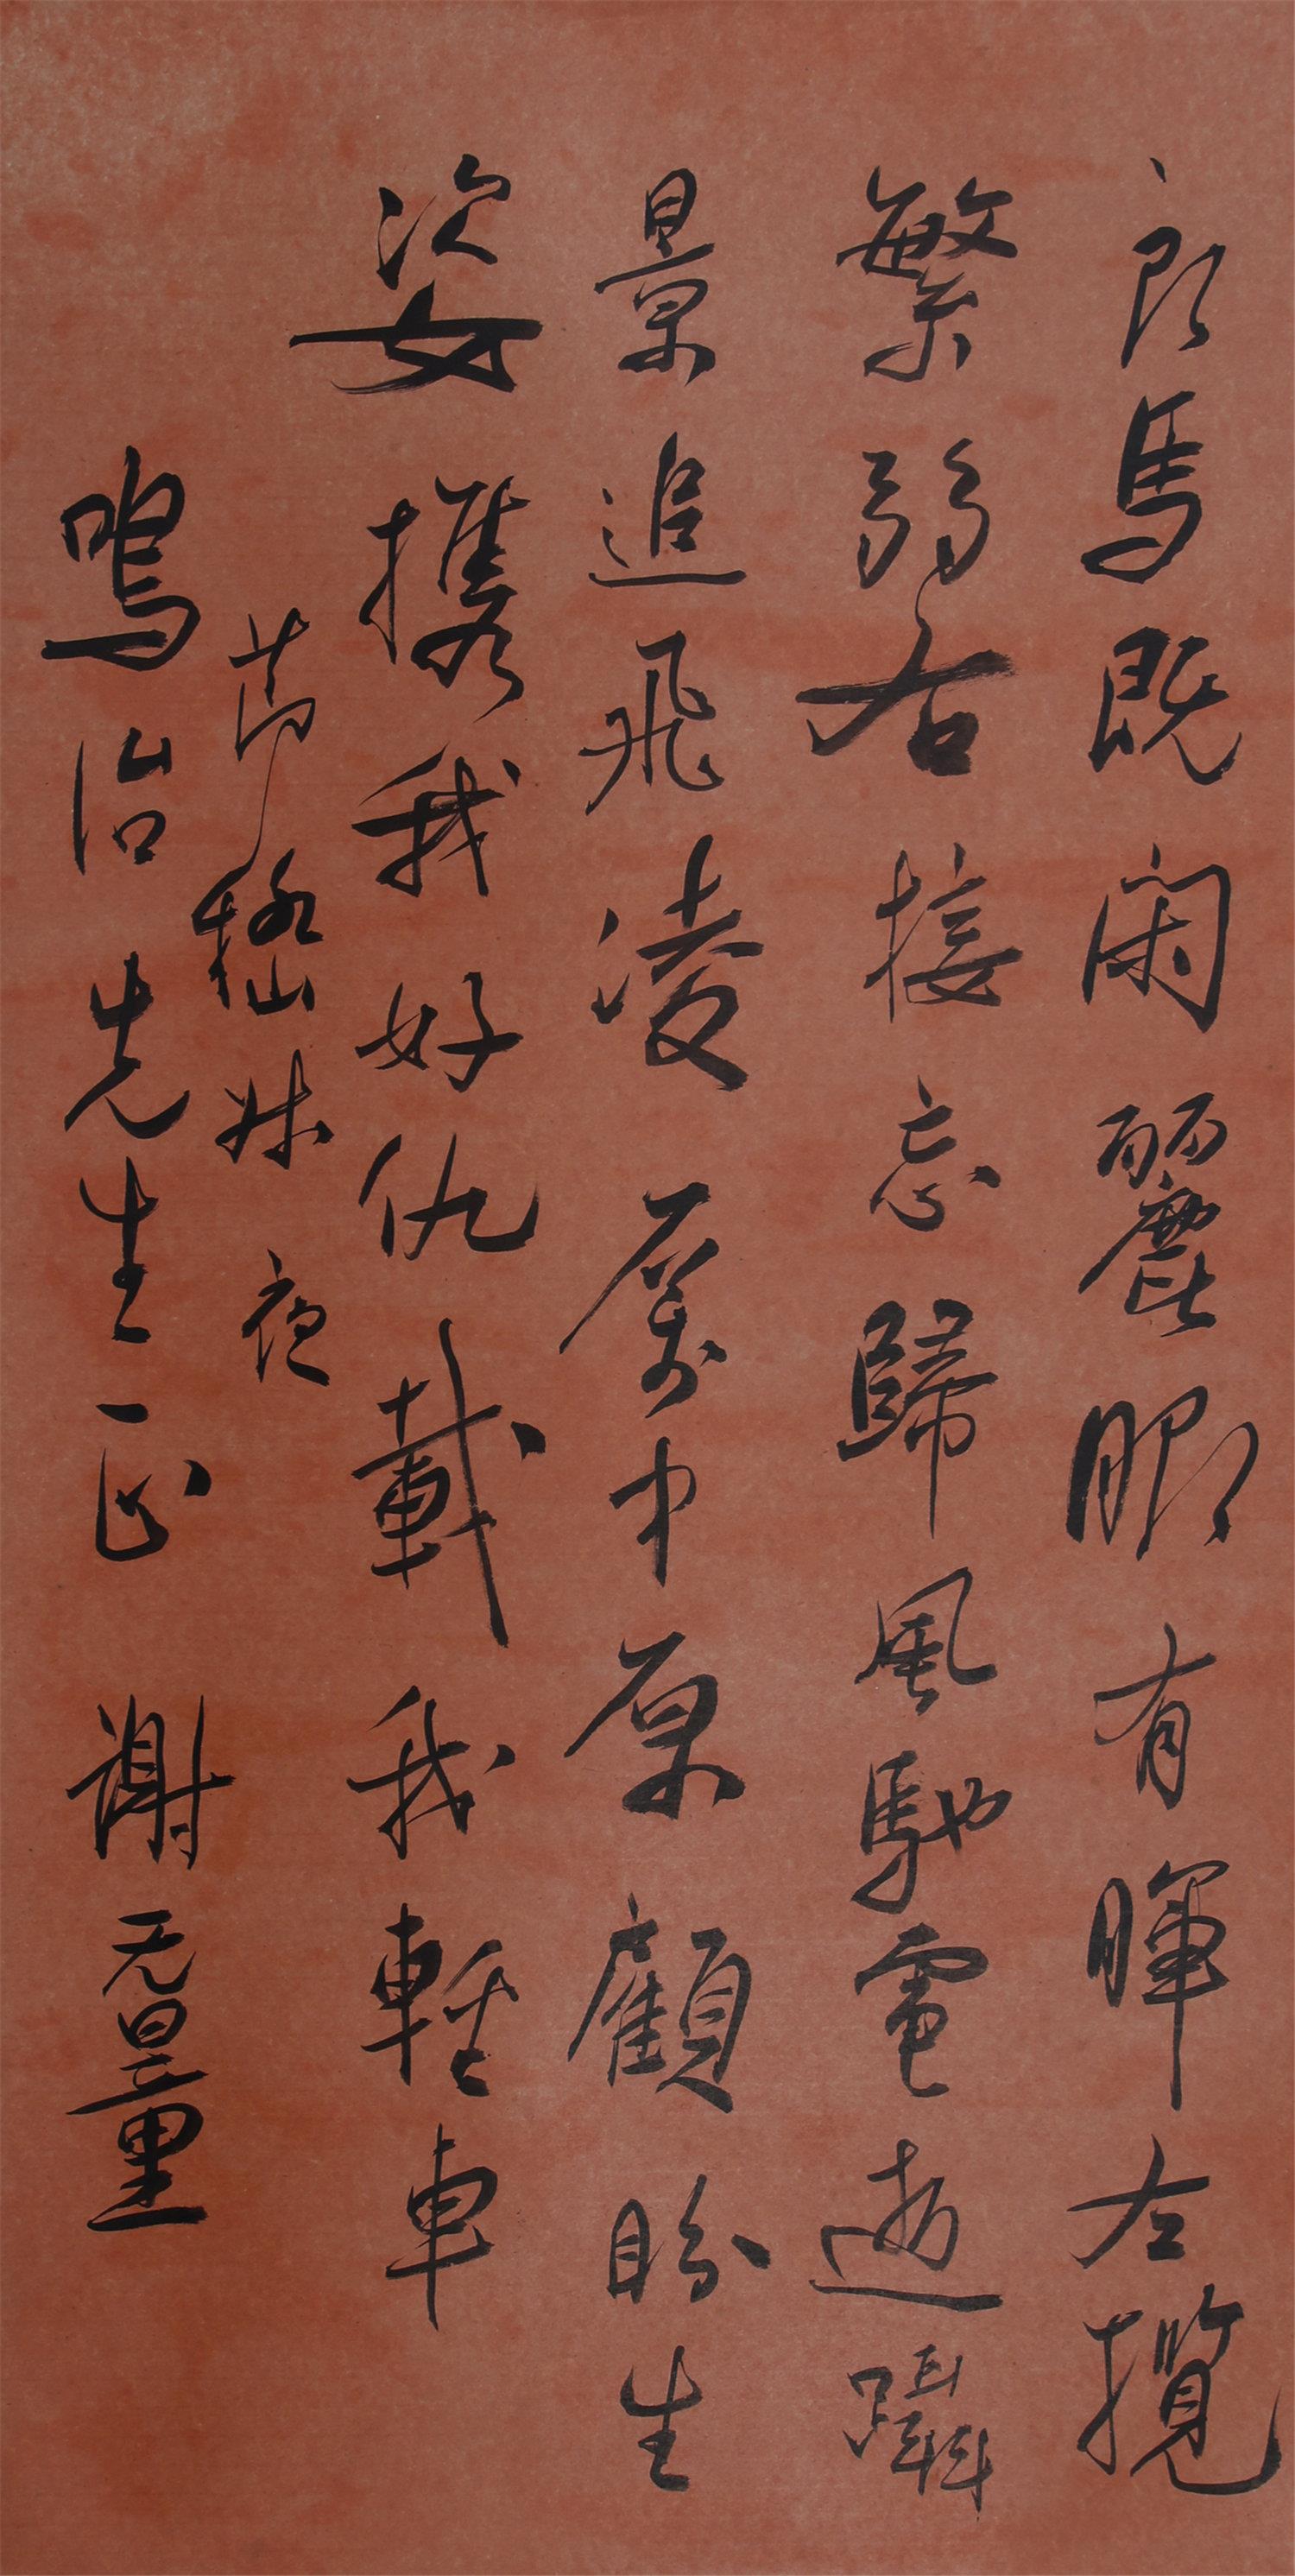 良馬既閑麗服有暉左攬
繁弱右接忘歸風馳電逝躡
景追飛凌厲中原顧盼生
姿攜我好仇載我輕車
節嵇叔夜
鳴治先生正 謝无量